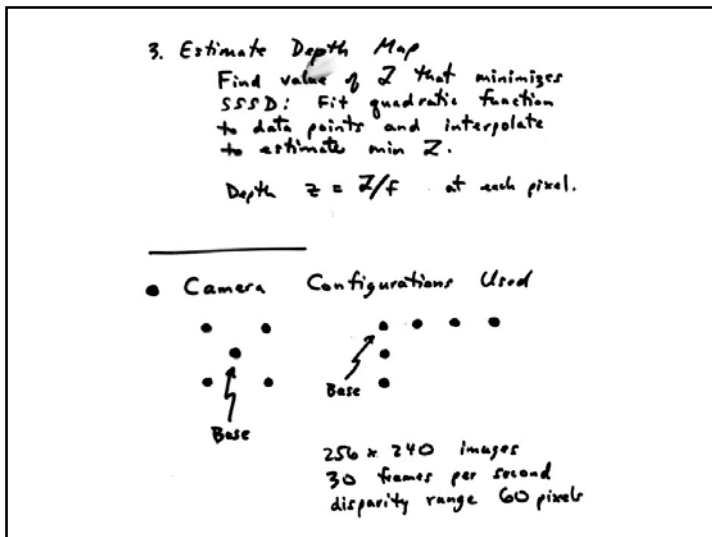 3. Estimate Depth Map
Find value of Z that minimizes
SSSD: Fit quadratic function
to data points and interpolate
to estimate min Z.
Depth z = Z/f at each pixel.
• Camera Configurations Used
Base
Base
256 x 240 images
30 frames per second
disparity range 60 pixels